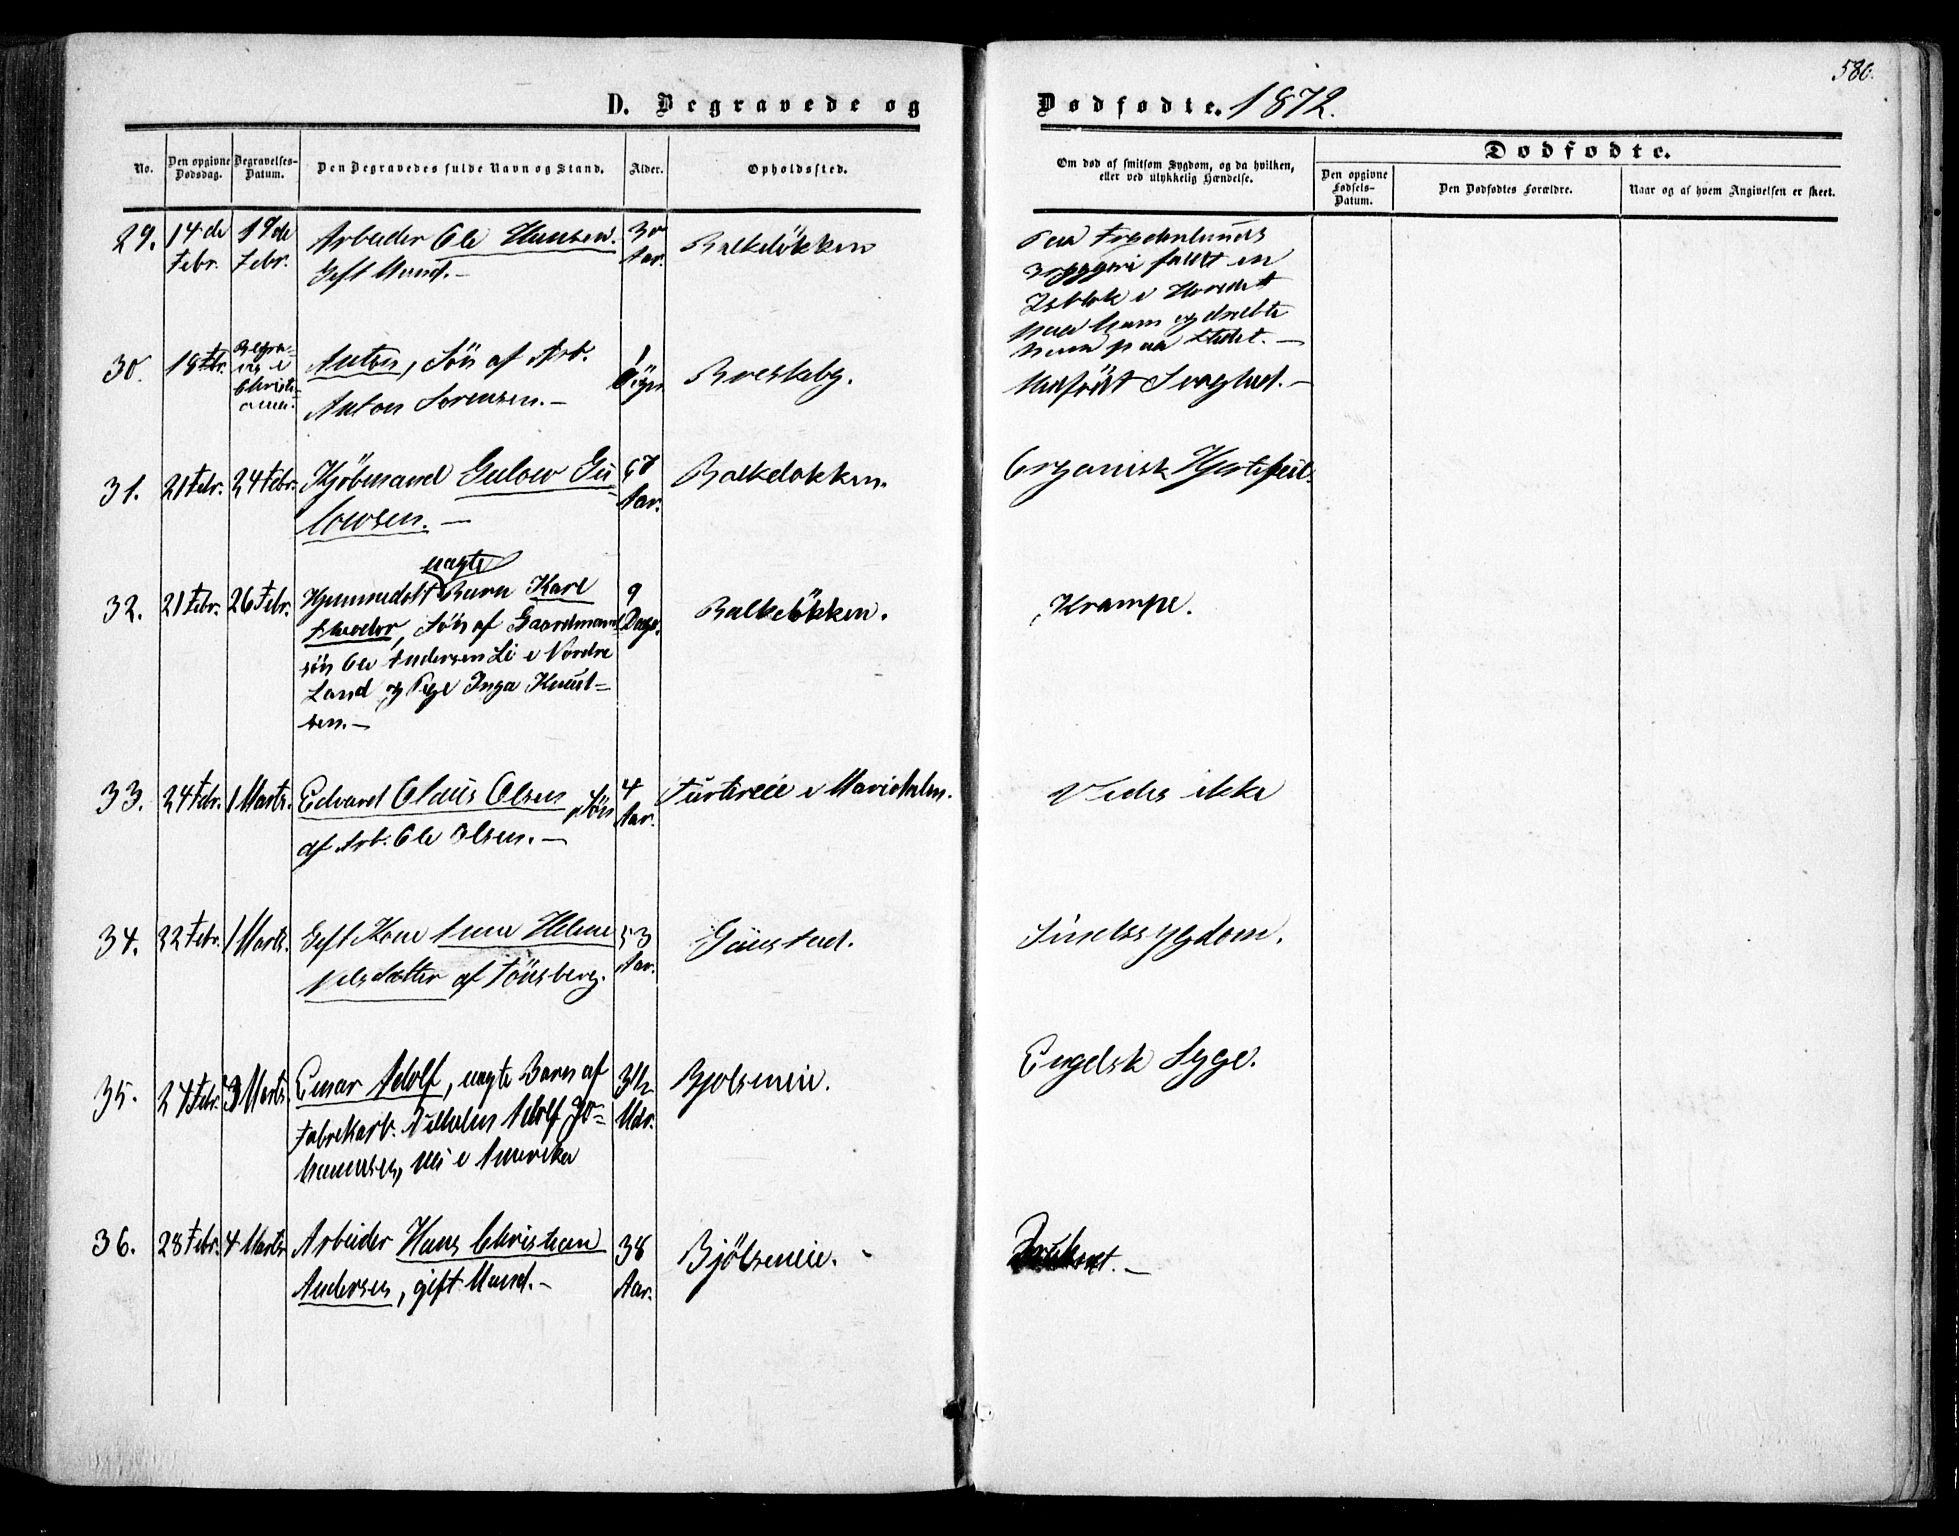 580.
D. Begravede og Dødfødte. 1872.
No.
Den opgivne Dødsdag.
Begravelses-Datum.
Den Begravedes fulde Navn og Stand.
Alder.
Opholdssted.
Om død af smitsom Sygdom, og da hvilken,
eller ved ulykkelig Hændelse.
Dødfødte.
Den opgivne Fødsels-Datum.
Den Dødfødtes Forældre.
Naar og af hvem Angivelsen er skeet.
29. 14de Febr. 19de Febr. Arbeider Ole Hansen. 30 Aar. Balkeløkken
Gift Mand.—
Paa Frydenlunds
Bryggeri faldt en
Isblok i Hovedet
paa ham og dræbte
ham paa Stedet.—
30. 18 Febr. Begra- i Christi- Anton, Søn af Arb. 1 Døgn Briskeby. Medfødt Svaghed.—
Anton Sorensen.—
31. 21 Febr. 24 Febr. Kjöbmand Gulow Gu- 67 Aar. Balkeløkken. Organisk Hjertefeil.
lowsen.—
uægte
32. 21 Febr. 26 Febr. Hjemmedøbt Barn Karl 9 Dage. Balkeløkken. Krampe.
Theodor, Søn af Gaardmand
søn Ole Andersen Li i Nordre
Land og Pige Inga Knud-
sen.—
33. 24 Febr. 1 Marts. Edvard Olaus Olsen, Søn 4 Aar. i Marieholm. Vides ikke
af Arb. Ole Olsen.—
34. 22 Febr. 1 Marts. Gift Kone Anne Helene 53 Aar. Gaustad. Sindssygdom.
Nilsdatter af Tönsberg.
35. 27 Febr. 3 Marts. Einar Adolf, uægte Barn af 3½ Mdr. Bjolseneie. Engelsk Syge.
Fabrikarb. Vilhelm Adolf Jo-
hannesen, nu i Amerika
36. 28 Febr. 4 Marts Arbeider Hans Christian 38 Aar. Bjölseneie.
Andersen, gift Mand.—